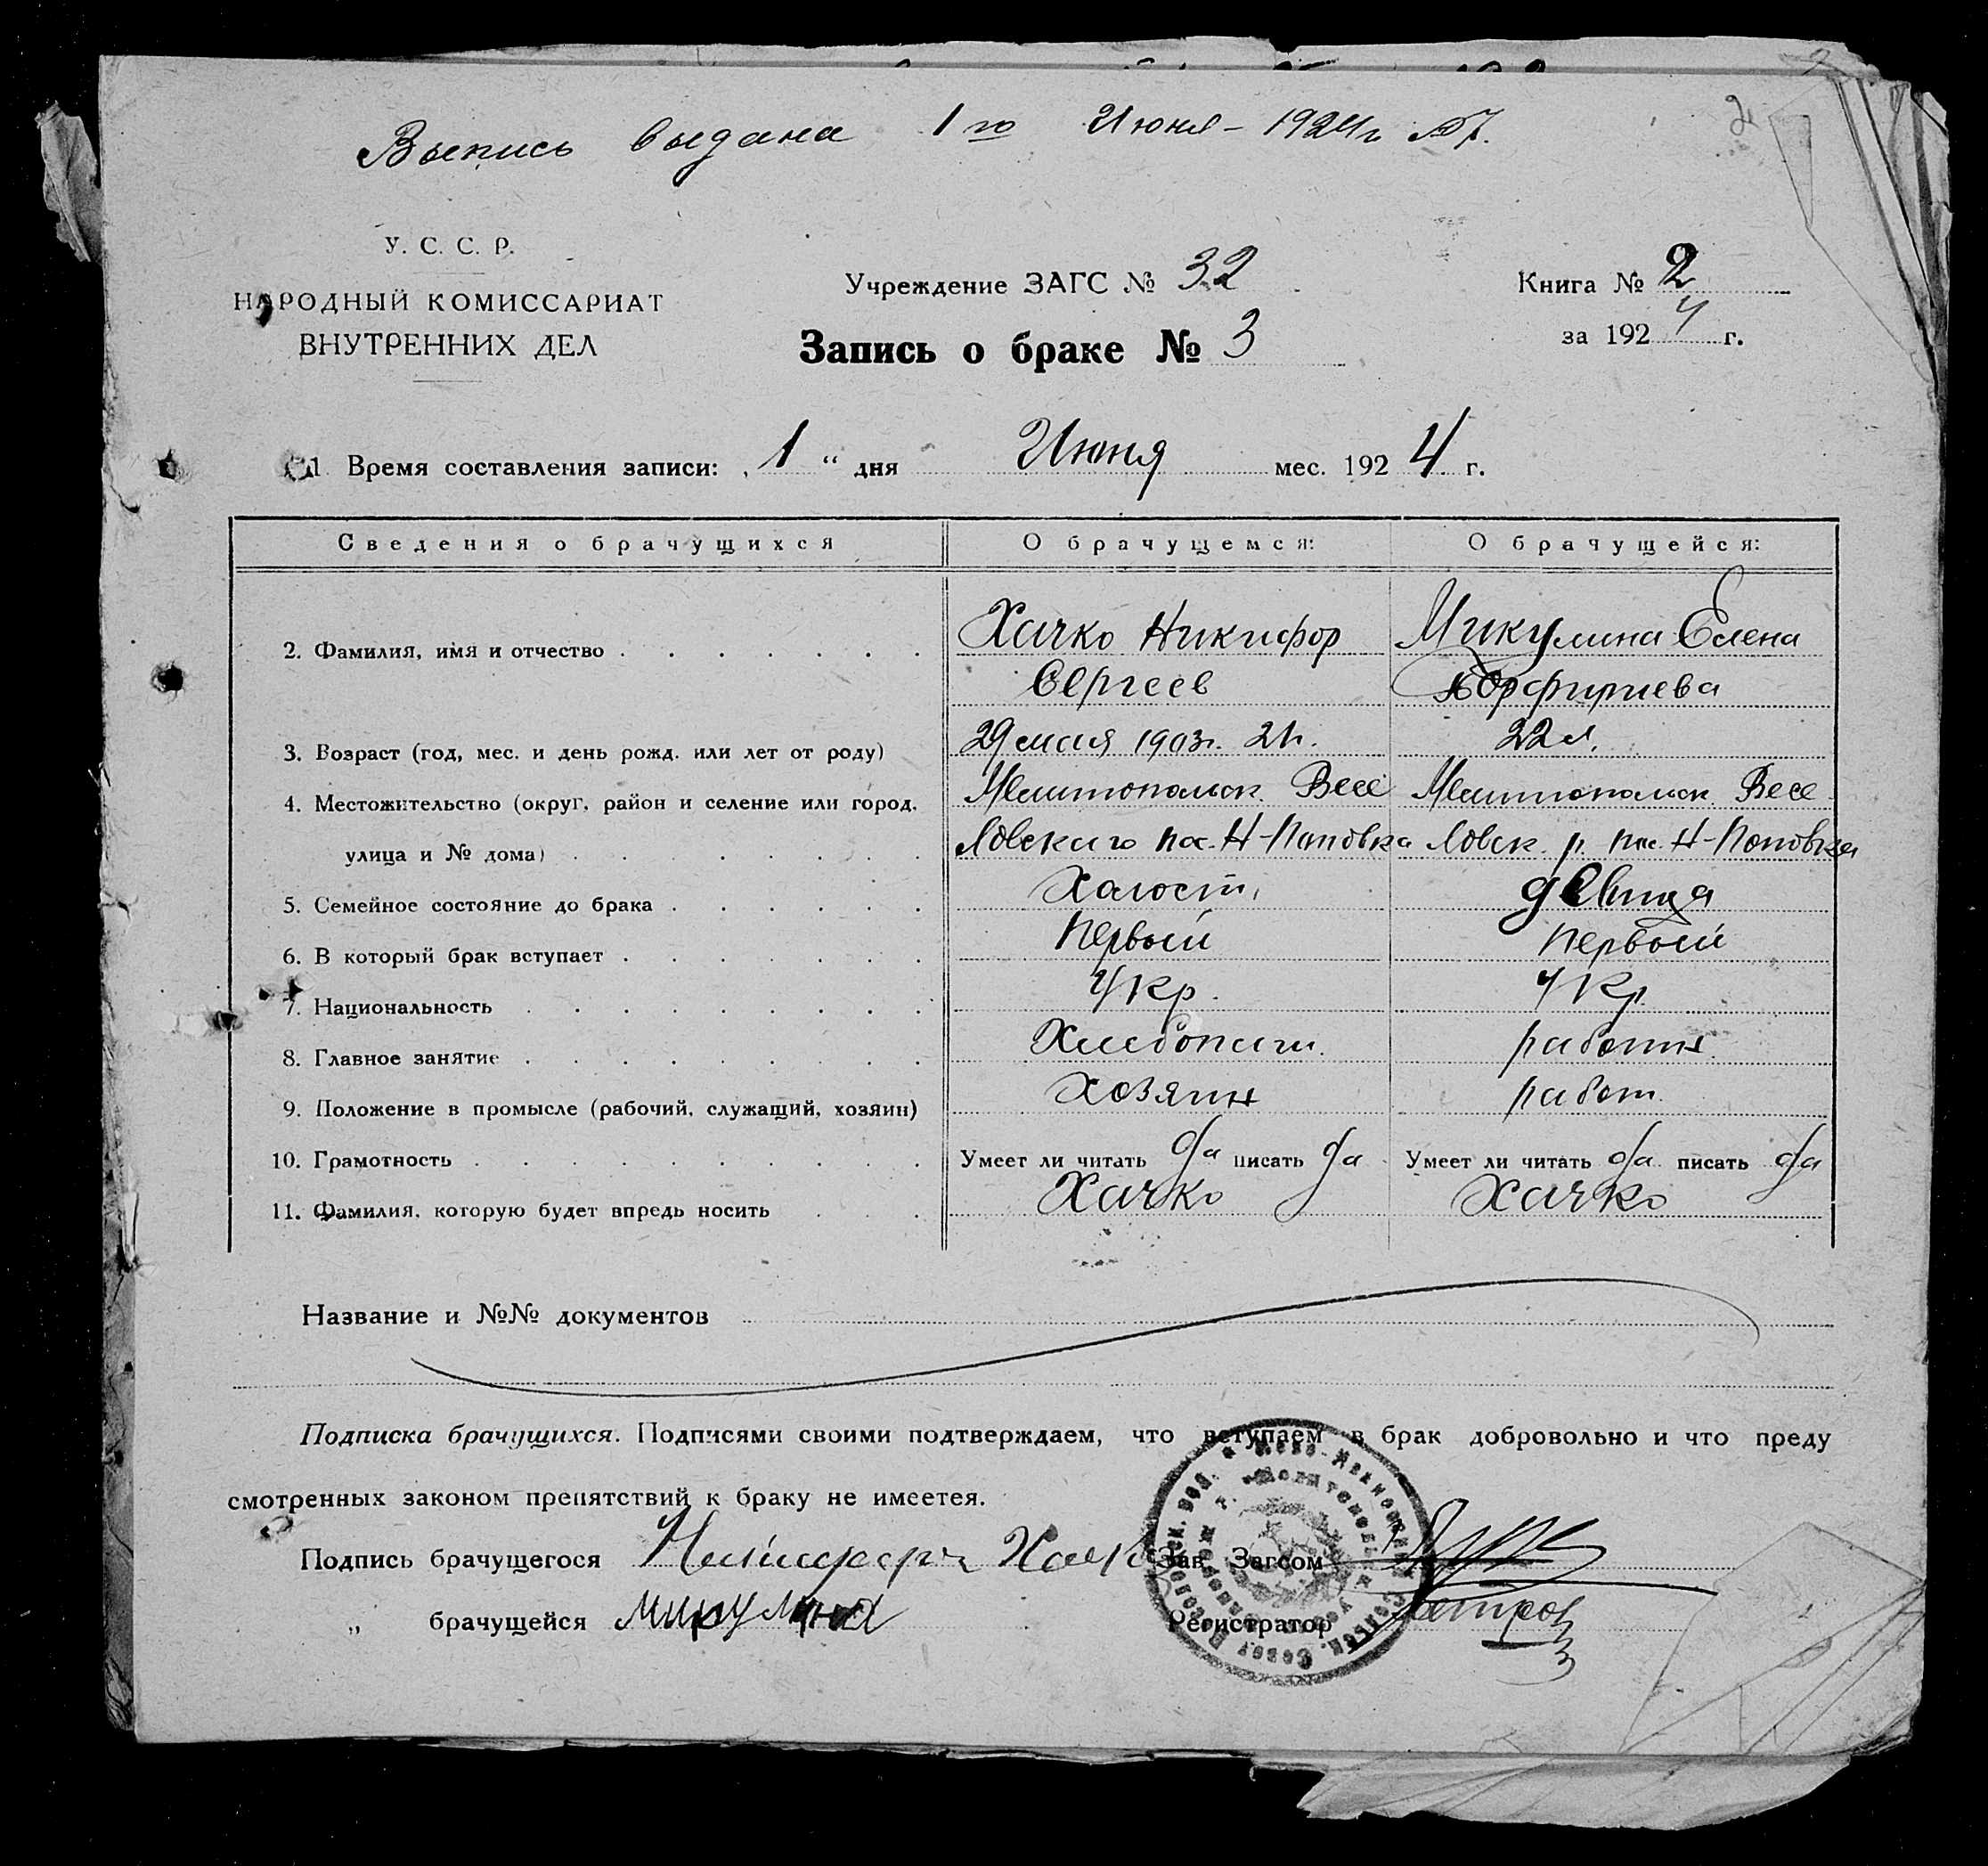 Выпись выдана 1го Июня - 1924г №7.
У. С. С. Р.
НАРОДНЫЙ КОМИССАРИАТ
ВНУТРЕННИХ ДЕЛ
Учреждение ЗАГС № 32
Запись о браке № 3
Книга № 2
за 1924 г.
1 Время составления записи: „ 1 “ дня Июня мес. 1924 г.
Сведения о брачущихся О брачущемся: О брачущейся:
2. Фамилия, имя и отчество Хачко Никифор Микулина Елена
Сергеев Порфириева
3. Возраст (год, мес. и день рожд. или лет от роду) 29 мая 1903г. 21г. 22 л.
4. Местожительство (округ, район и селение или город, Мелитопольск. Весе Мелитопольск. Весе
улица и № дома) ловскаго пос. Н-Поповка ловск. р. пос. Н-Поповка
5. Семейное состояние до брака Холост. девица
6. В который брак вступает Первый Первый
7. Национальность Укр. Укр.
8. Главное занятие Хлебопаш. работн.
9. Положение в промысле (рабочий, служащий, хозяин) хозяин работ.
10. Грамотность Умеет ли читать да писать да Умеет ли читать да писать да
11. Фамилия, которую будет впредь носить Хачко Хачко
Название и №№ документов
Подписка брачущихся. Подписями своими подтверждаем, что вступаем в брак добровольно и что преду
смотренных законом препятствий к браку не имеетея.
Подпись брачущегося Никифор Хачко Зав. Загсом
„ брачущейся Микулина Регистратор